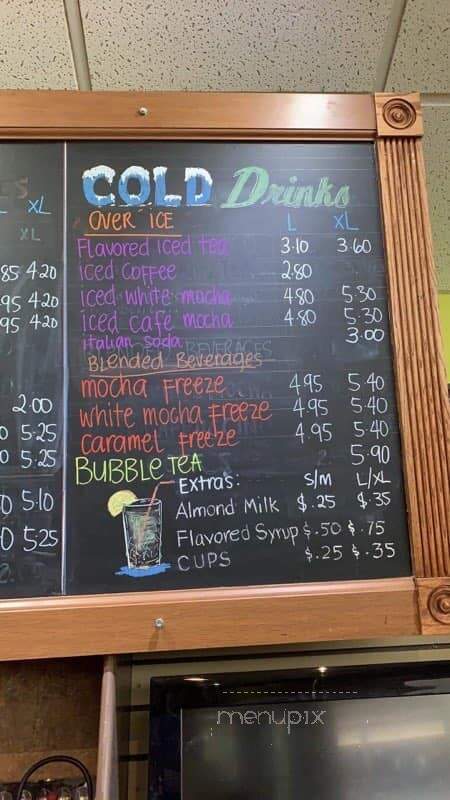 XL
XL
85 4.20
95 4.20
95 4.20
2.00
0 5.25
0 5.25
0 5.10
0 5.25
COLD Drinks
OVER ICE L XL
Flavored iced tea 3.10 3.60
iced coffee 2.80
iced white mocha 4.80 5.30
iced cafe mocha 4.80 5.30
italian soda 3.00
Blended Beverages
mocha freeze 4.95 5.40
white mocha freeze 4.95 5.40
caramel freeze 4.95 5.40
BUBBLE TEA 5.90
Extra's: S/M L/XL
Almond Milk $.25 $.35
Flavored Syrup $.50 $.75
CUPS $.25 $.35
menupix